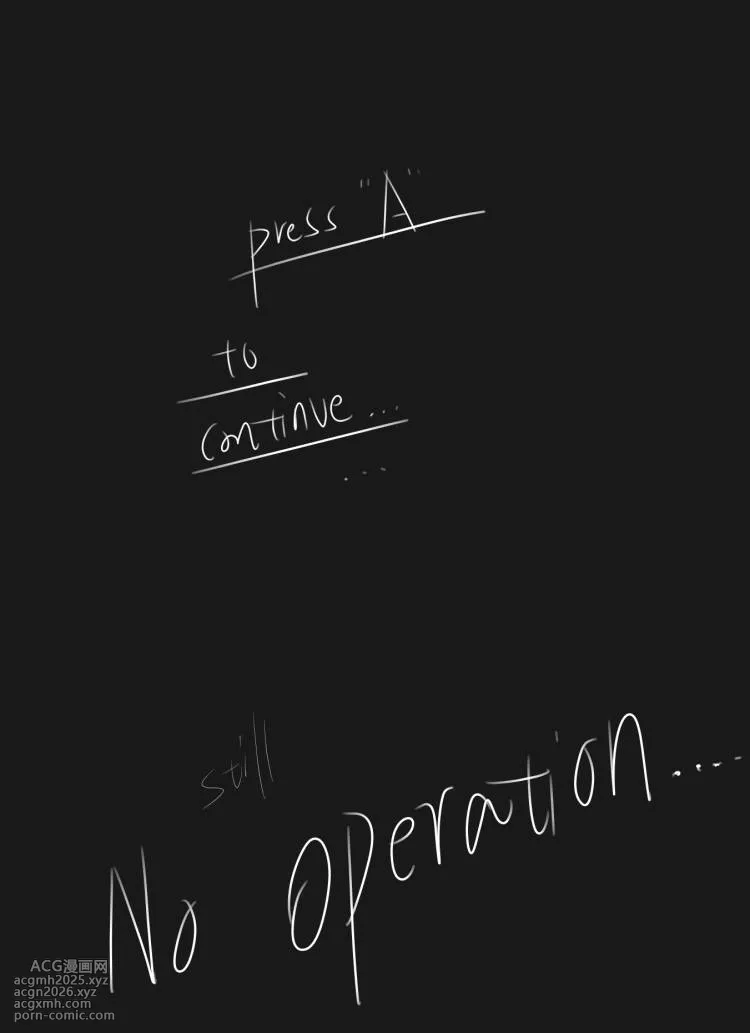 press "A"
to
continue...
...
still
No operation.....
ACG漫画网
acgmh2025.xyz
acgn2026.xyz
acgxmh.com
porn-comic.com